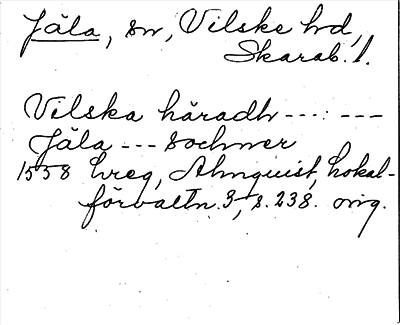 Jäla, sn, Vilske hd,
Skarab. l.
Vilska häradh ---: ---
Jäla --- sochner
1558 hreg, Almquist, Lokal-
förvaltn. 3, s. 238. orig.